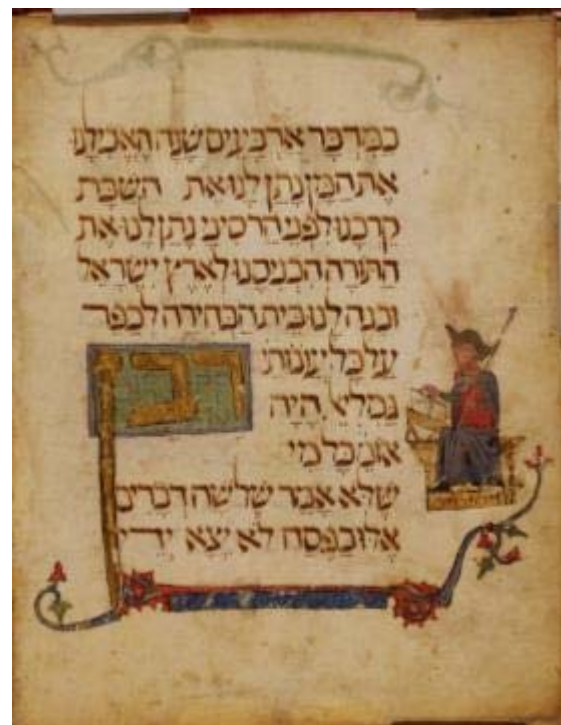 במדבר ארבעים שנה האכילנו
את המן נתן לנו את השבת
קרבנו לפני הר סיני נתן לנו את
התורה הכניסנו לארץ ישראל
ובנה לנו בית הבחירה לכפר
על כל עונותי
רבן
גמליא היה
אומ כל מי
שלא אמר שלשה דברים
אלו בפסח לא יצא ידי